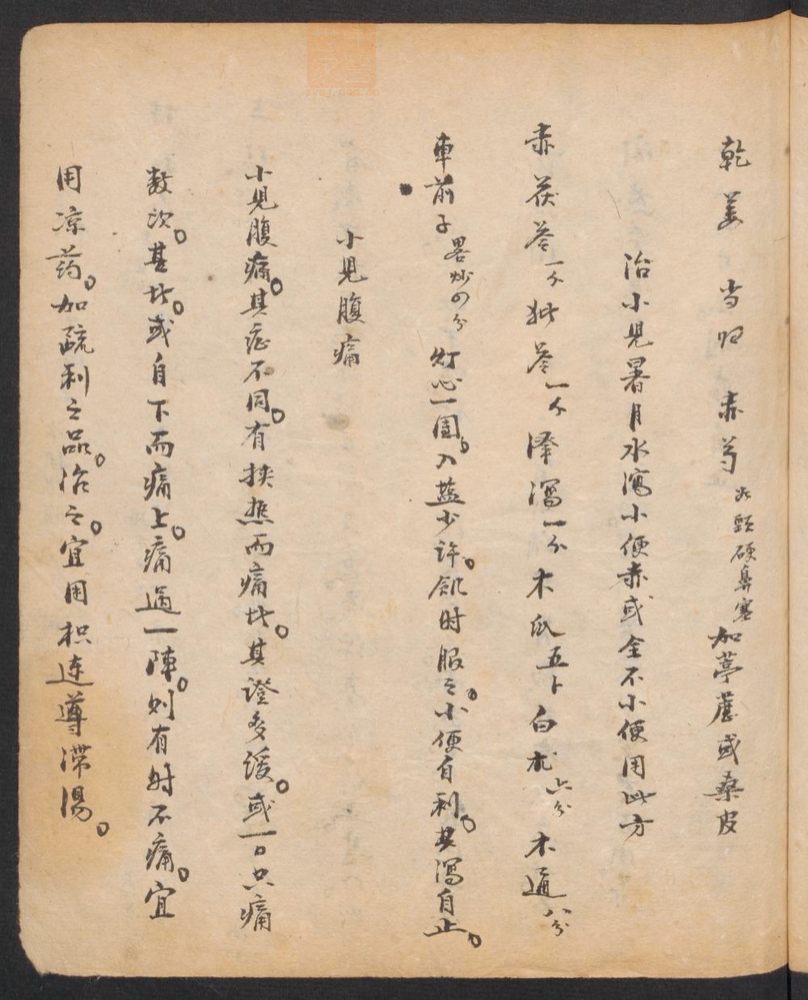 乾姜 当归 赤芍 如頭硬鼻塞加葶藶或桑皮
治小兒暑月水瀉小便赤或全不小便用此方
赤茯苓一分 猪苓一分 澤瀉一分 木瓜五卜 白朮六分 木通八分
車前子畧炒四分 灯心一團。入盐少許。飢时服之。小便自利。其瀉自止。
小兒腹痛
小兒腹痛。其症不同。有挾热而痛者。其證多緩。或一日只痛
数次。甚者。或自下而痛上。痛過一陣。则有时不痛。宜
用凉药。加疏利之品。治之。宜用枳連導滞湯。